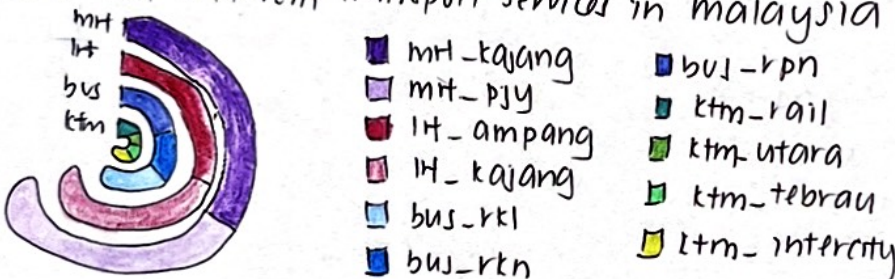 transport services in malaysia
mrt
lrt
bus
ktm
mrt_kajang
mrt_pjy
lrt_ampang
lrt_kajang
bus_rkl
bus_rkn
bus_rpn
ktm_rail
ktm_utara
ktm_tebrau
ktm_intercity